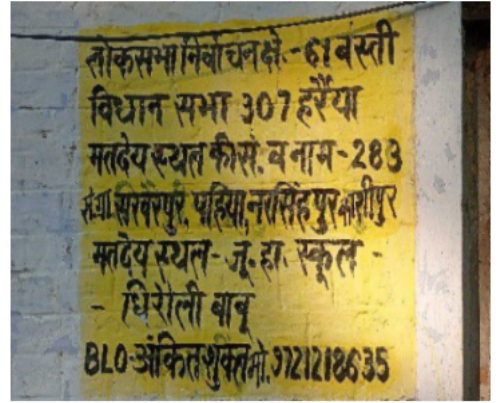 लोकसभा निर्वाचन क्षे.-61 बस्ती
विधान सभा 307 हर्रैया
मतदेय स्थल की सं. व नाम-283
सं.ग्रा. सरवरपुर, पहिया, नरसिंहपुर, काशीपुर
मतदेय स्थल-जू. हा. स्कूल -
- धिरौली बाबू
BLO-अंकित शुक्ल मो. 9721218635